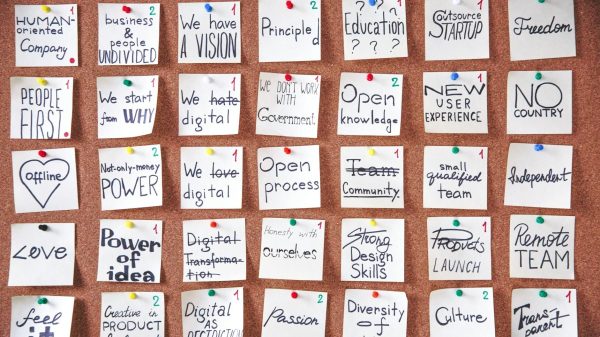 HUMAN-
oriented
Company.
2
business
& people
UNDIVIDED
1
We have
A VISION
2
Principled
2
? ?
Education
? ? ?
1
Outsource
STARTUP
Freedom
PEOPLE
FIRST.
2
We start
from WHY
1
We hate
digital
1
We DON'T WORK
WITH
Government.
2
Open
knowledge
1
NEW
USER
EXPERIENCE
NO
COUNTRY
Offline
2
Not-only-money
POWER
1
We love
digital
1
Open
process
1
Team
Community.
1
small
qualified
team
Independent
Love
1
Power of
idea
1
Digital
Transforma-
tion
2
Honesty with
ourselves
Strong
Design
Skills
1
Products
LAUNCH
Remote
TEAM
feel
it
2
Creative in
PRODUCT
1
Digital
AS
2
Passion
Diversity
of
2
Culture
1
Trans
parent